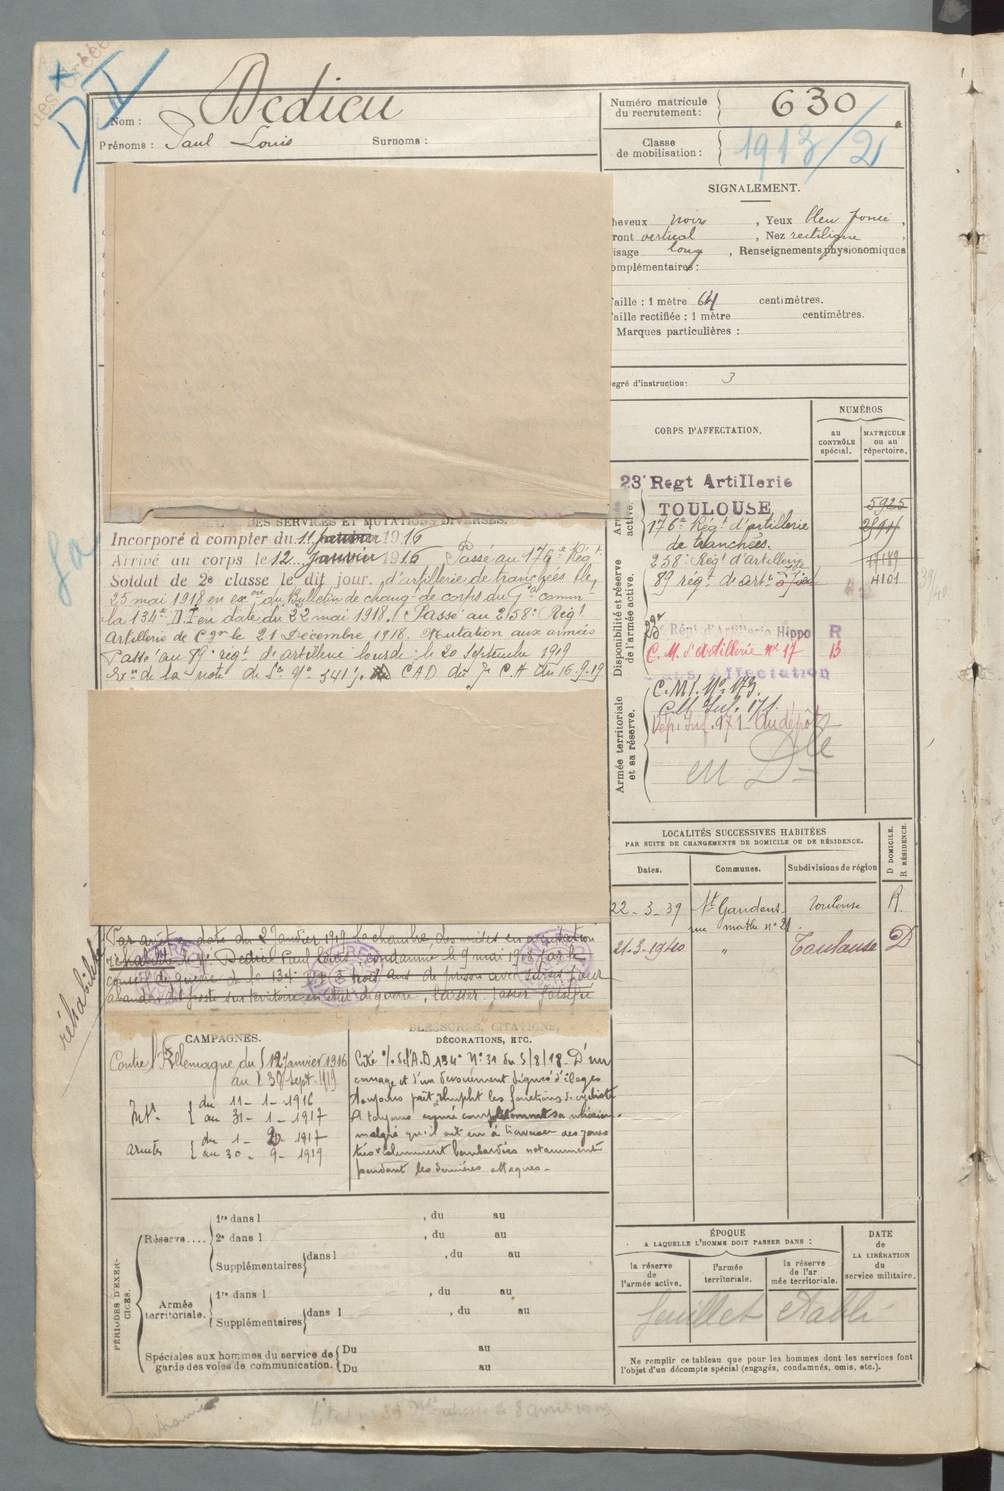 DV
Nom : Dedieu
Prénoms : Paul Louis Surnoms :
Numéro matricule
du recrutement : 630
Classe
de mobilisation : 1913/2
SIGNALEMENT.
heveux noir , Yeux bleu foncé ,
ront vertical , Nez rectiligne ,
isage long , Renseignements physionomiques
omplémentaires :
aille : 1 mètre 64 centimètres.
aille rectifiée : 1 mètre centimètres.
Marques particulières :
egré d'instruction : 3
CORPS D'AFFECTATION.
NUMÉROS
au
CONTRÔLE
spécial.
MATRICULE
ou au
répertoire.
Armée
active.
23e Regt Artillerie
TOULOUSE
5925
176e Régt d'artillerie
de tranchées.
258e Régt d'artillerie
89 régt d'art
4101
Disponibilité et réserve
de l'armée active.
23e Régt d'Artillerie Hippo R
C. M. d'Artillerie n° 17 B
sans Affectation
Armée territoriale
et sa réserve.
C.M.I. N° 173.
C.M. Inf. 171.
Dép. Inf. 171 Au dépôt
en Dle
DES SERVICES ET MUTATIONS DIVERSES.
Incorporé à compter du 11 Janvier 1916
Arrivé au corps le 12 Janvier 1916 Passé au 176e Régt
Soldat de 2e classe le dit jour. d'artillerie de tranchées le
25 mai 1918 en exon du Bulletin de changt de corps du
la 134e D.I en date du 22 mai 1918. Passé au 258e Régt
Artillerie de Cgne le 21 Décembre 1918. Mutation aux armées
Passé au 89e régt d'artillerie lourde le 20 Septembre 1919
de la note de Sce N° 541 CAD du CA du 16.9.19
LOCALITÉS SUCCESSIVES HABITÉES
PAR SUITE DE CHANGEMENTS DE DOMICILE OU DE RÉSIDENCE.
Dates. Communes. Subdivisions de région
D DOMICILE.
R RÉSIDENCE.
22-3-39 St Gaudens Toulouse R.
rue n° 21
21-3-1940 " Toulouse D
Par arrêt date du 2 Janvier 1919 la chambre des mises en accusation
réhabilité Dedieu Paul Louis condamné le 9 mai 1918 par le
conseil de guerre de la 134e D.I à trois ans de prison avec sursis pour
abandon de poste sur territoire en état de guerre, laisser passer falsifié
réhabilité
CAMPAGNES.
Contre l'Allemagne du 12 Janvier 1916
au 30 Sept. 1919
Intr { du 11-1-1916
au 31-1-1917
armées { du 1-2-1917
au 30-9-1919
BLESSURES, CITATIONS,
DÉCORATIONS, ETC.
Cité o/. de l'A.D. 134e N° 31 du 5/8/18 D'un
courage et d'un dévouement dignes d'éloges
toujours prêt remplit les fonctions de cycliste
A toujours assuré complètement sa mission
malgré qu'il ait eu à traverser des zones
très violemment bombardées notamment
pendant les dernières attaques.
PÉRIODES D'EXER-
CICES.
Réserve....
1re dans l , du au
2e dans l , du au
Supplémentaires { dans l , du au
Armée
territoriale.
1re dans l , du au
Supplémentaires { dans l , du au
Spéciales aux hommes du service de
garde des voies de communication.
Du au
Du au
ÉPOQUE
A LAQUELLE L'HOMME DOIT PASSER DANS :
la réserve
de
l'armée active.
l'armée
territoriale.
la réserve
de l'ar
mée territoriale.
DATE
de
LA LIBÉRATION
du
service militaire.
feuillet établi
Ne remplir ce tableau que pour les hommes dont les services font
l'objet d'un décompte spécial (engagés, condamnés, omis, etc.).